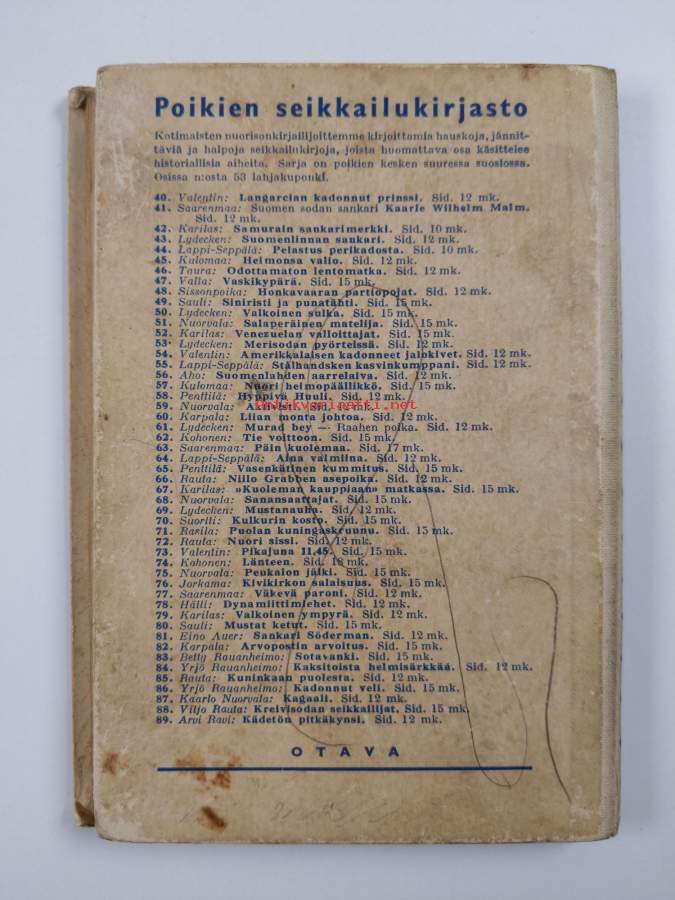 Poikien seikkailukirjasto
Kotimaisten nuorisonkirjailijoittemme kirjoittamia hauskoja, jännit-
täviä ja halpoja seikkailukirjoja, joista huomattava osa käsittelee
historiallisia aiheita. Sarja on poikien kesken suuressa suosiossa.
Osissa n:osta 53 lahjakuponki.
40. Valentin: Langarcian kadonnut prinssi. Sid. 12 mk.
41. Saarenmaa: Suomen sodan sankari Kaarle Wilhelm Malm.
Sid. 12 mk.
42. Karilas: Samurain sankarimerkki. Sid. 10 mk.
43. Lydecken: Suomenlinnan sankari. Sid. 12 mk.
44. Lappi-Seppälä: Pelastus perikadosta. Sid. 10 mk.
45. Kulomaa: Heimonsa valio. Sid. 12 mk.
46. Taura: Odottamaton lentomatka. Sid. 12 mk.
47. Valta: Vaskikypärä. Sid. 15 mk.
48. Sissonpoika: Honkavaaran partiopojat. Sid. 12 mk.
49. Sauli: Siniristi ja punatähti. Sid. 15 mk.
50. Lydecken: Valkoinen sulka. Sid. 15 mk.
51. Nuorvala: Salaperäinen matelija. Sid. 15 mk.
52. Karilas: Venezuelan valloittajat. Sid. 15 mk.
53. Lydecken: Merisodan pyörteissä. Sid. 12 mk.
54. Valentin: Amerikkalaisen kadonneet jalokivet. Sid. 12 mk.
55. Lappi-Seppälä: Stålhandsken kasvinkumppani. Sid. 12 mk.
56. Aho: Suomenlahden aarrelaiva. Sid. 12 mk.
57. Kulomaa: Nuori heimopäällikkö. Sid. 15 mk.
58. Penttilä: Hyppivä Huuli. Sid. 12 mk.
antikvariaatti.net
59. Nuorvala: Sid. 15 mk.
60. Karpala: Liian monta johtoa. Sid. 12 mk.
61. Lydecken: Murad bey — Raahen poika. Sid. 12 mk.
62. Kohonen: Tie voittoon. Sid. 15 mk.
63. Saarenmaa: Päin kuolemaa. Sid. 17 mk.
64. Lappi-Seppälä: Aina valmiina. Sid. 12 mk.
65. Penttilä: Vasenkätinen kummitus. Sid. 15 mk.
66. Rauta: Niilo Grabben asepoika. Sid. 12 mk.
67. Karilas: »Kuoleman kauppiaan» matkassa. Sid. 15 mk.
68. Nuorvala: Sanansaattajat. Sid. 15 mk.
69. Lydecken: Mustanauha. Sid. 12 mk.
70. Suortti: Kulkurin kosto. Sid. 15 mk.
71. Rasila: Puolan kuningaskruunu. Sid. 15 mk.
72. Rauta: Nuori sissi. Sid. 12 mk.
73. Valentin: Pikajuna 11,45. Sid. 15 mk.
74. Kohonen: Länteen. Sid. 18 mk.
75. Nuorvala: Peukalon jälki. Sid. 15 mk.
76. Jorkama: Kivikirkon salaisuus. Sid. 15 mk.
77. Saarenmaa: Väkevä paroni. Sid. 12 mk.
78. Hälli: Dynamiittimiehet. Sid. 12 mk.
79. Karilas: Valkoinen ympyrä. Sid. 12 mk.
80. Sauli: Mustat ketut. Sid. 15 mk.
81. Eino Auer: Sankari Söderman. Sid. 12 mk.
82. Karpala: Arvopostin arvoitus. Sid. 15 mk.
83. Betty Rauanheimo: Sotavanki. Sid. 15 mk.
84. Yrjö Rauanheimo: Kaksitoista helmisärkkää. Sid. 12 mk.
85. Rauta: Kuninkaan puolesta. Sid. 12 mk.
86. Yrjö Rauanheimo: Kadonnut veli. Sid. 12 mk.
87. Kaarlo Nuorvala: Kagaali. Sid. 12 mk.
88. Viljo Rauta: Kreivisodan seikkailijat. Sid. 15 mk.
89. Arvi Ravi: Kädetön pitkäkynsi. Sid. 12 mk.
OTAVA